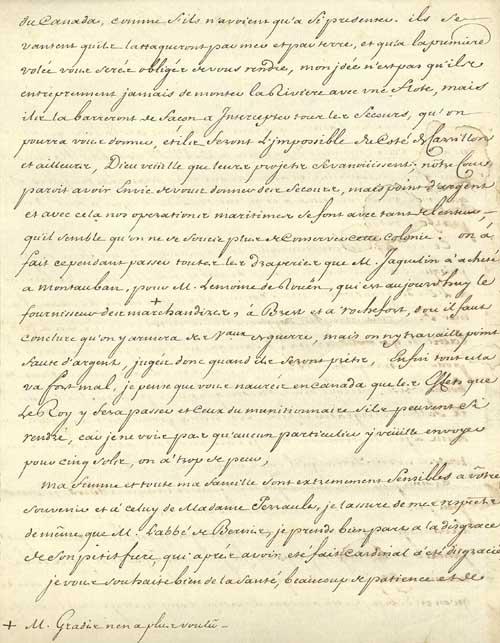 du Canada, comme s'ils n'avoient qu'a se presenter. ils se
vantent qu'ils l'attaqueront par mer et par terre, et qu'a la premiere
volée vous serés obligés de vous rendre, mon idée n'est pas qu'ils
entreprennent jamais de monter la Riviere avec une flote, mais
ils la barreront de facon a Intercepter tous les Secours, qu'on
pourra vous donner, et ils feront L'impossible du Coté de Carrillon
et ailleurs, Dieu veuille que leurs projets s'evanoüissent: nôtre Cour
paroit avoir Envie de vous donner des Secours, mais point d'argent
et avec cela nos operations maritimes se font avec tant de lenteur,
qu'il semble qu'on ne se soucie plus de Conserver cette colonie: on á
fait cependant passer toutes les draperies que M. Jaquelin á acheté
a montauban, pour M. Lemoine de Roüen, qui est aujourd'huy le
fournisseur des marchandises, + á Brest et a rochefort, dou il faut
conclure qu'on y armera des Vaux en guerre, mais on n'y travaille point
faute d'argent, jugés donc quand ils seront prêts, Enfin tout cela
va fort mal, je pense que vous n'aurés en canada que les Effets que
Le Roy y fera passer et Ceux du munitionnaire s'ils peuvent s'y
rendre, car je ne vois pas qu'aucun particulier y veüille envoyer
pour cinq sols, on á trop de peur,
ma femme et toute ma famille sont extremement Sensibles a vôtre
souvenir et á celuy de Madame Perrault, je l'assure de mes respects
de même que M. L'abbé de Bernis, je prends bien part a la disgrace
de son petit frere, qui aprés avoir eté fait Cardinal á été disgracié
je vous souhaite bien de la Santé, beaucoup de patience et de
+ M. Gradis n'en a plus voulû -